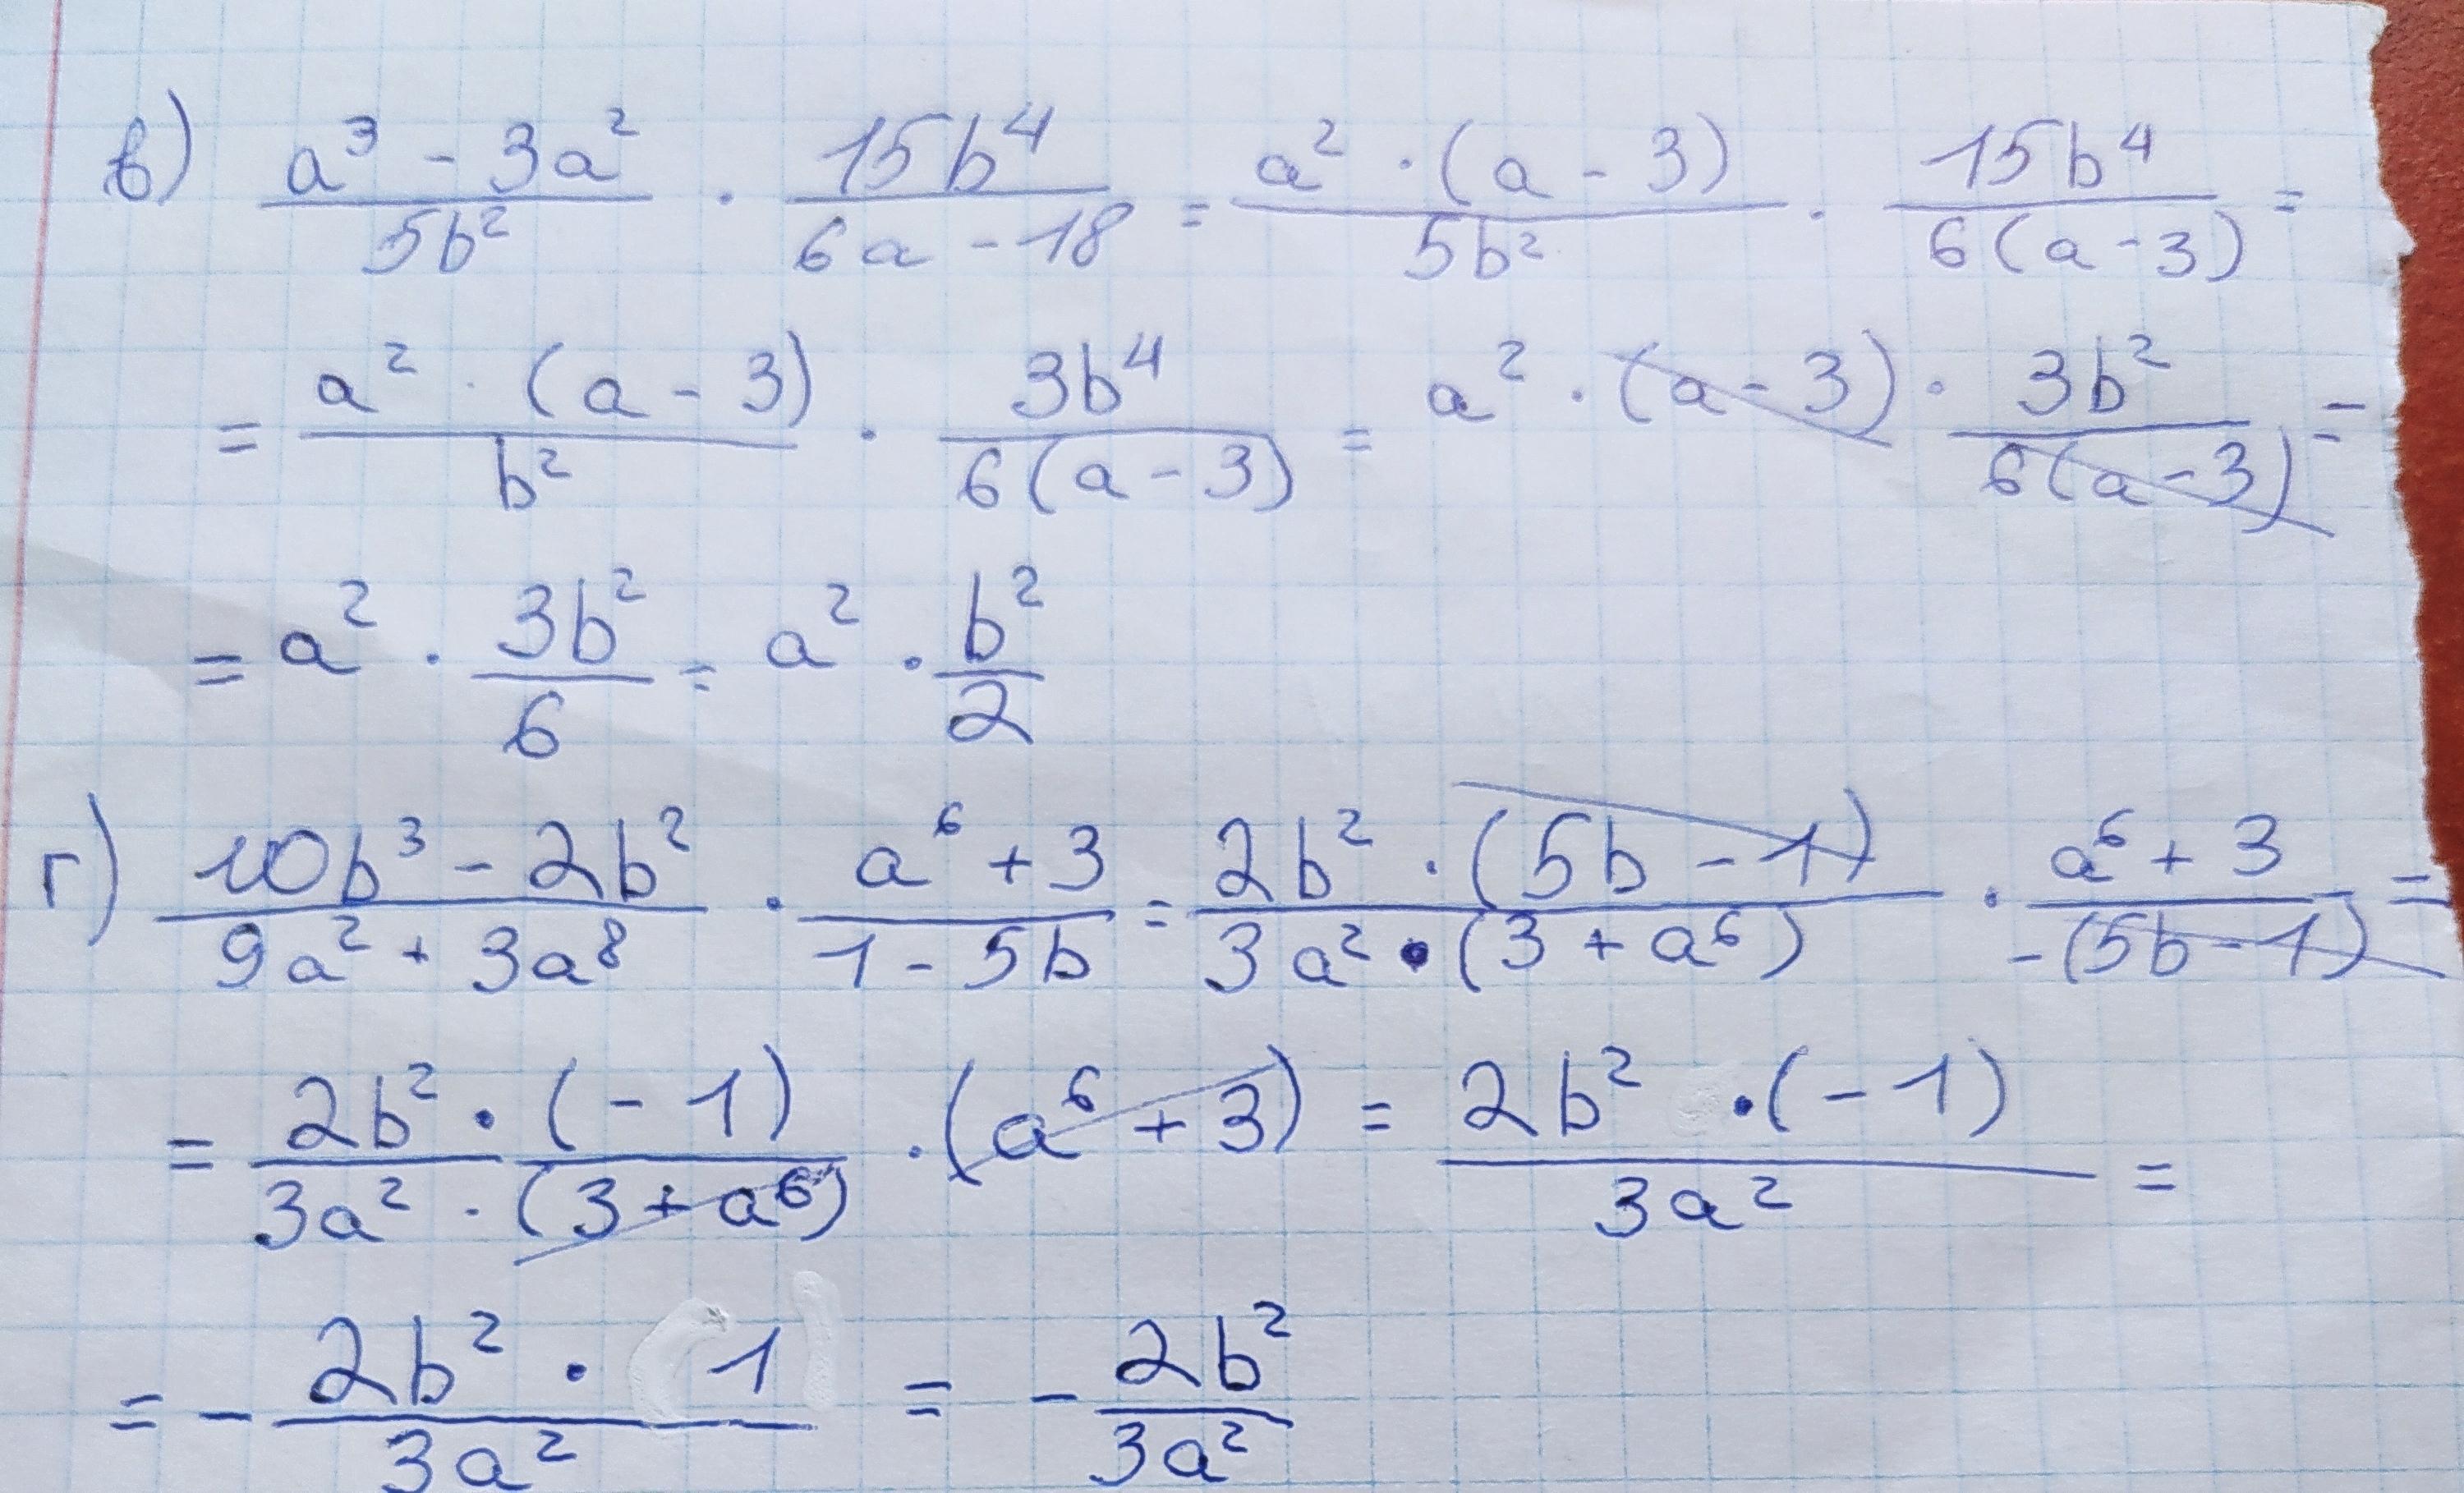 в) (a³ - 3a²)/(5b²) · (15b⁴)/(6a - 18) = (a² · (a - 3))/(5b²) · (15b⁴)/(6(a - 3)) =
= (a² · (a - 3))/(b²) · (3b⁴)/(6(a - 3)) = a² · (a - 3) · (3b²)/(6(a - 3)) =
= a² · (3b²)/6 = a² · (b²)/2
г) (10b³ - 2b²)/(9a² + 3a⁸) · (a⁶ + 3)/(1 - 5b) = (2b² · (5b - 1))/(3a² · (3 + a⁶)) · (a⁶ + 3)/(-(5b - 1)) =
= (2b² · (-1))/(3a² · (3 + a⁶)) · (a⁶ + 3) = (2b² · (-1))/(3a²) =
= - (2b² · 1)/(3a²) = - (2b²)/(3a²)